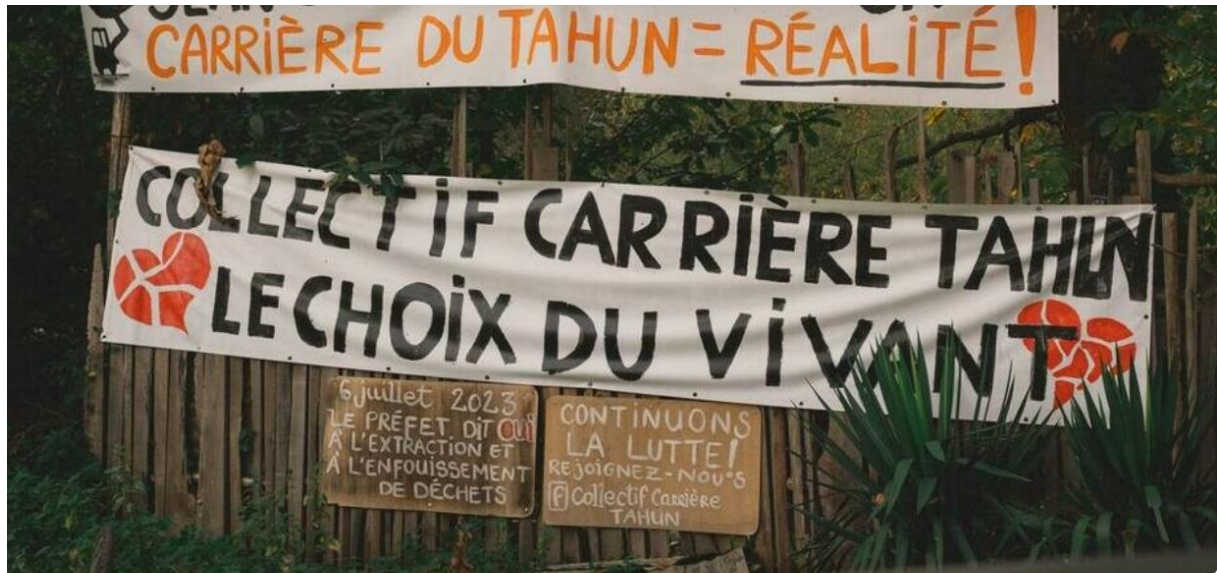 CARRIÈRE DU TAHUN = RÉALITÉ!
COLLECTIF CARRIÈRE TAHUN
LE CHOIX DU VIVANT
6 juillet 2023
LE PRÉFET DIT OUI
À L'EXTRACTION ET
À L'ENFOUISSEMENT
DE DÉCHETS
CONTINUONS
LA LUTTE!
REJOIGNEZ-NOUS
f Collectif Carrière
TAHUN